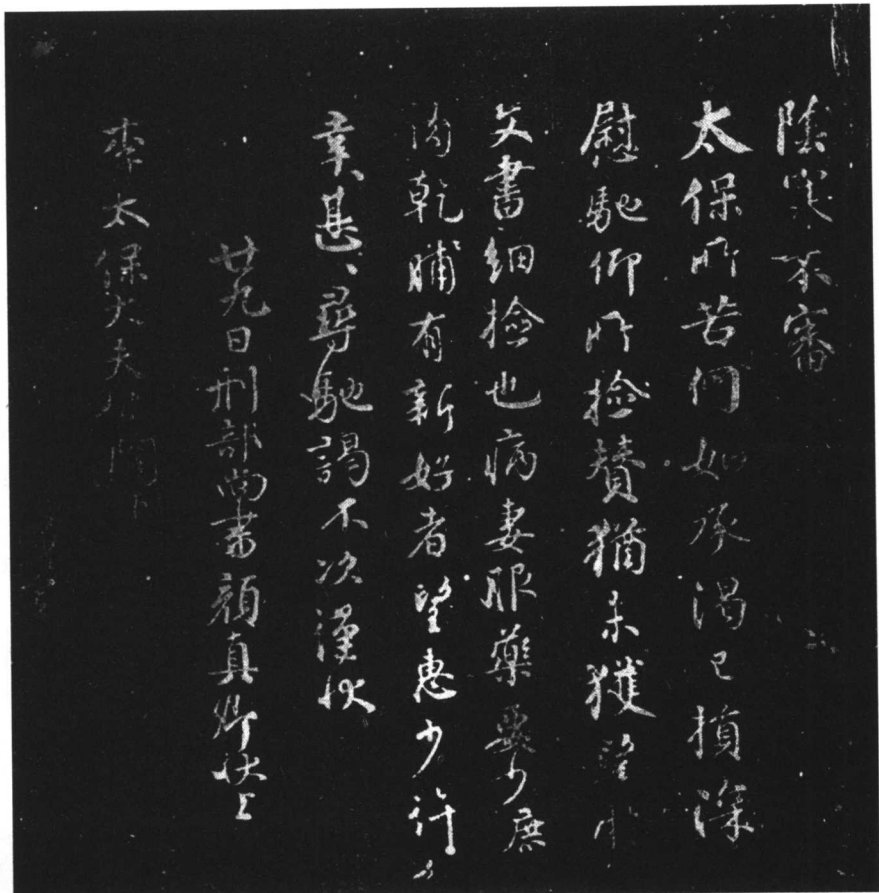 陰寒不審
太保所苦何如承渴已損深
慰馳仰所撿贊猶未獲望於
文書細撿也病妻服藥要少鹿
肉乾脯有新好者望惠少許
幸甚〻尋馳謁不次謹狀
廿九日刑部尚書顏真卿狀上
李太保大夫公閣下